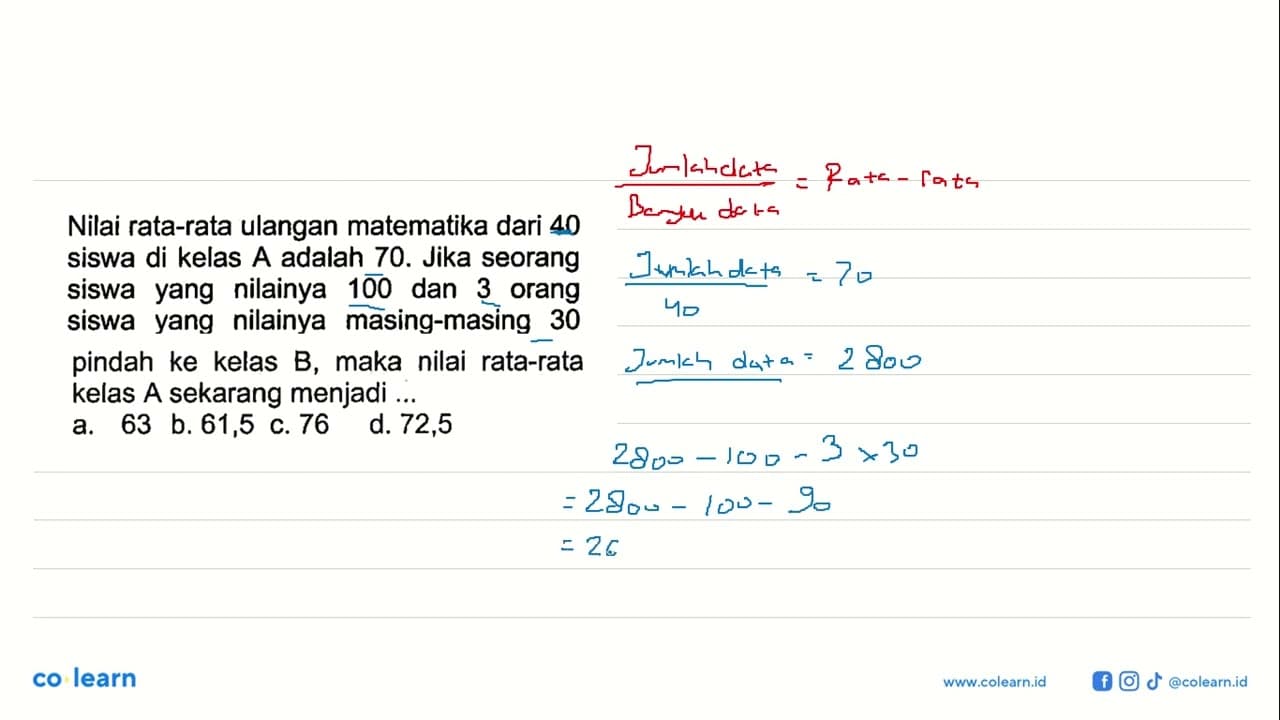 Nilai rata-rata ulangan matematika dari 40
siswa di kelas A adalah 70. Jika seorang
siswa yang nilainya 100 dan 3 orang
siswa yang nilainya masing-masing 30
pindah ke kelas B, maka nilai rata-rata
kelas A sekarang menjadi ...
a. 63 b. 61,5 c. 76 d. 72,5
Jumlah data
= Rata-rata
data
Jumlah data
= 70
40
Jumlah data = 2800
2800 - 100 - 3 x 30
= 2800 - 100 - 90
= 26
co learn
www.colearn.id
@colearn.id